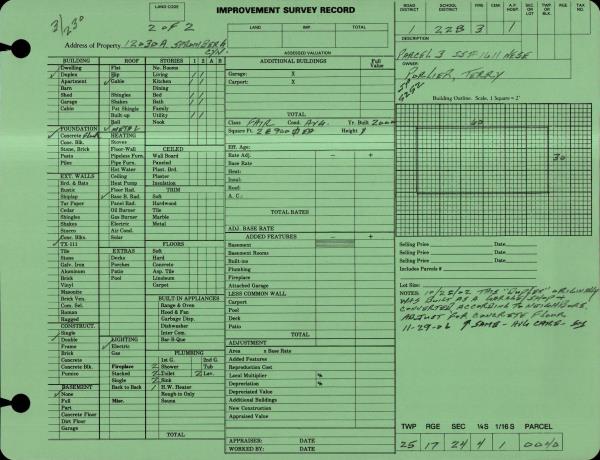 LAND CODE
IMPROVEMENT SURVEY RECORD
ROAD DISTRICT SCHOOL DISTRICT CITY A.F. HOSP. SIZE OR LOT TWP OR BLK. RGE TAX NO.
3/23
2 OF 2
LAND IMP. TOTAL
22B 3 1
Address of Property 12030 A
CYN.
ASSESSED VALUATION
DESCRIPTION
PARCEL 3 SSF 1611 NESE
OWNER
PORLIER, TERRY
BUILDING ROOF STORIES 1 2 A B
ADDITIONAL BUILDINGS Full Value
Dwelling Flat Rooms
Duplex Hip Living
Apartment Gable Kitchen
Barn Dining
Shed Shingles Bed
Garage Shakes Bath
Cabin Pat Shingle Family
Built-up Utility
Roll Nook
METAL
Garage: X
Carport: X
TOTAL
Building Outline. Scale, 1 Square = 2'
60
30
Class FAIR Cond. AVG. Yr. Built
Square Ft. Height
FOUNDATION
Concrete HEATING
Conc. Blk. Stoves
Stone, Brick Floor-Wall CEILED
Posts Pipeless Furn. Wall Board
Piles Pipe Furn. Paneled
Hot Water Plast. Brd.
EXT. WALLS Ceiling Plaster
Brd. & Bats Heat Pump Insulation
Rustic Floor Rad. TRIM
Shiplap Base B. Rad. Soft
Tar Paper Panel Rad. Hardwood
Cedar Oil Burner Tile
Shingles Gas Burner Marble
Shakes Electric Metal
Stucco Air Cond.
Conc. Blks. Solar
TX-111 FLOORS
Tile EXTRAS Soft
Stone Decks Hard
Galv. Iron Porches Concrete
Aluminum Patio Asp. Tile
Brick Pool Linoleum
Vinyl Carpet
Masonite
Brick Ven. BUILT-IN APPLIANCES
Com. Sel. Range & Oven
Roman Hood & Fan
Ragged Garbage Disp.
CONSTRUCT. Dishwasher
Single Inter Com.
Double LIGHTING Bar-B-Que
Frame Electric
Brick Gas PLUMBING
Concrete 1st G. 2nd G.
Concrete Blk. Fireplace Shower Tub
Pumice Stacked Toilet Lav.
Single Sink
BASEMENT Back to Back H.W. Heater
None Rough-in Only
Full Misc. Sauna
Part
Concrete Floor
Dirt Floor
Garage
TOTAL
Eff. Age:
Rate Adj. − +
Base Rate
Heat:
Insul:
Roof:
A. C.:
TOTAL RATES
ADJ. BASE RATE
ADDED FEATURES − +
Basement
Basement Rooms
Built-ins
Plumbing
Fireplace
Attached Garage
LESS COMMON WALL
Carport
Pool
Deck
Patio
TOTAL
ADJUSTMENT
Area x Base Rate
Added Features
Reproduction Cost
Local Multiplier %
Depreciation %
Depreciated Value
Additional Buildings
New Construction
Appraised Value
APPRAISER: DATE
WORKED BY: DATE
Selling Price Date
Selling Price Date
Selling Price Date
Includes Parcels #
Lot Size:
NOTES: 10/22/02 THE "DUPLEX" ORIGINALLY
WAS BUILT AS A GARAGE/SHOP &
CONVERTED ACCORDING TO NEIGHBORS.
ADJUST FOR CONCRETE FLOOR
11-29-06
TWP RGE SEC ¼S 1/16 S PARCEL
25 17 24 4 1 0040